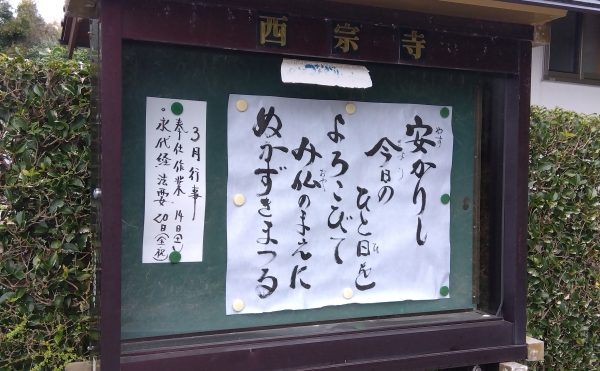 西宗寺
安かりし
今日の
ひと日を
よろこびて
み仏のまえに
ぬかずきまつる
3月行事
奉仕作業 14日(土)
。永代経法要 20日(金祝)